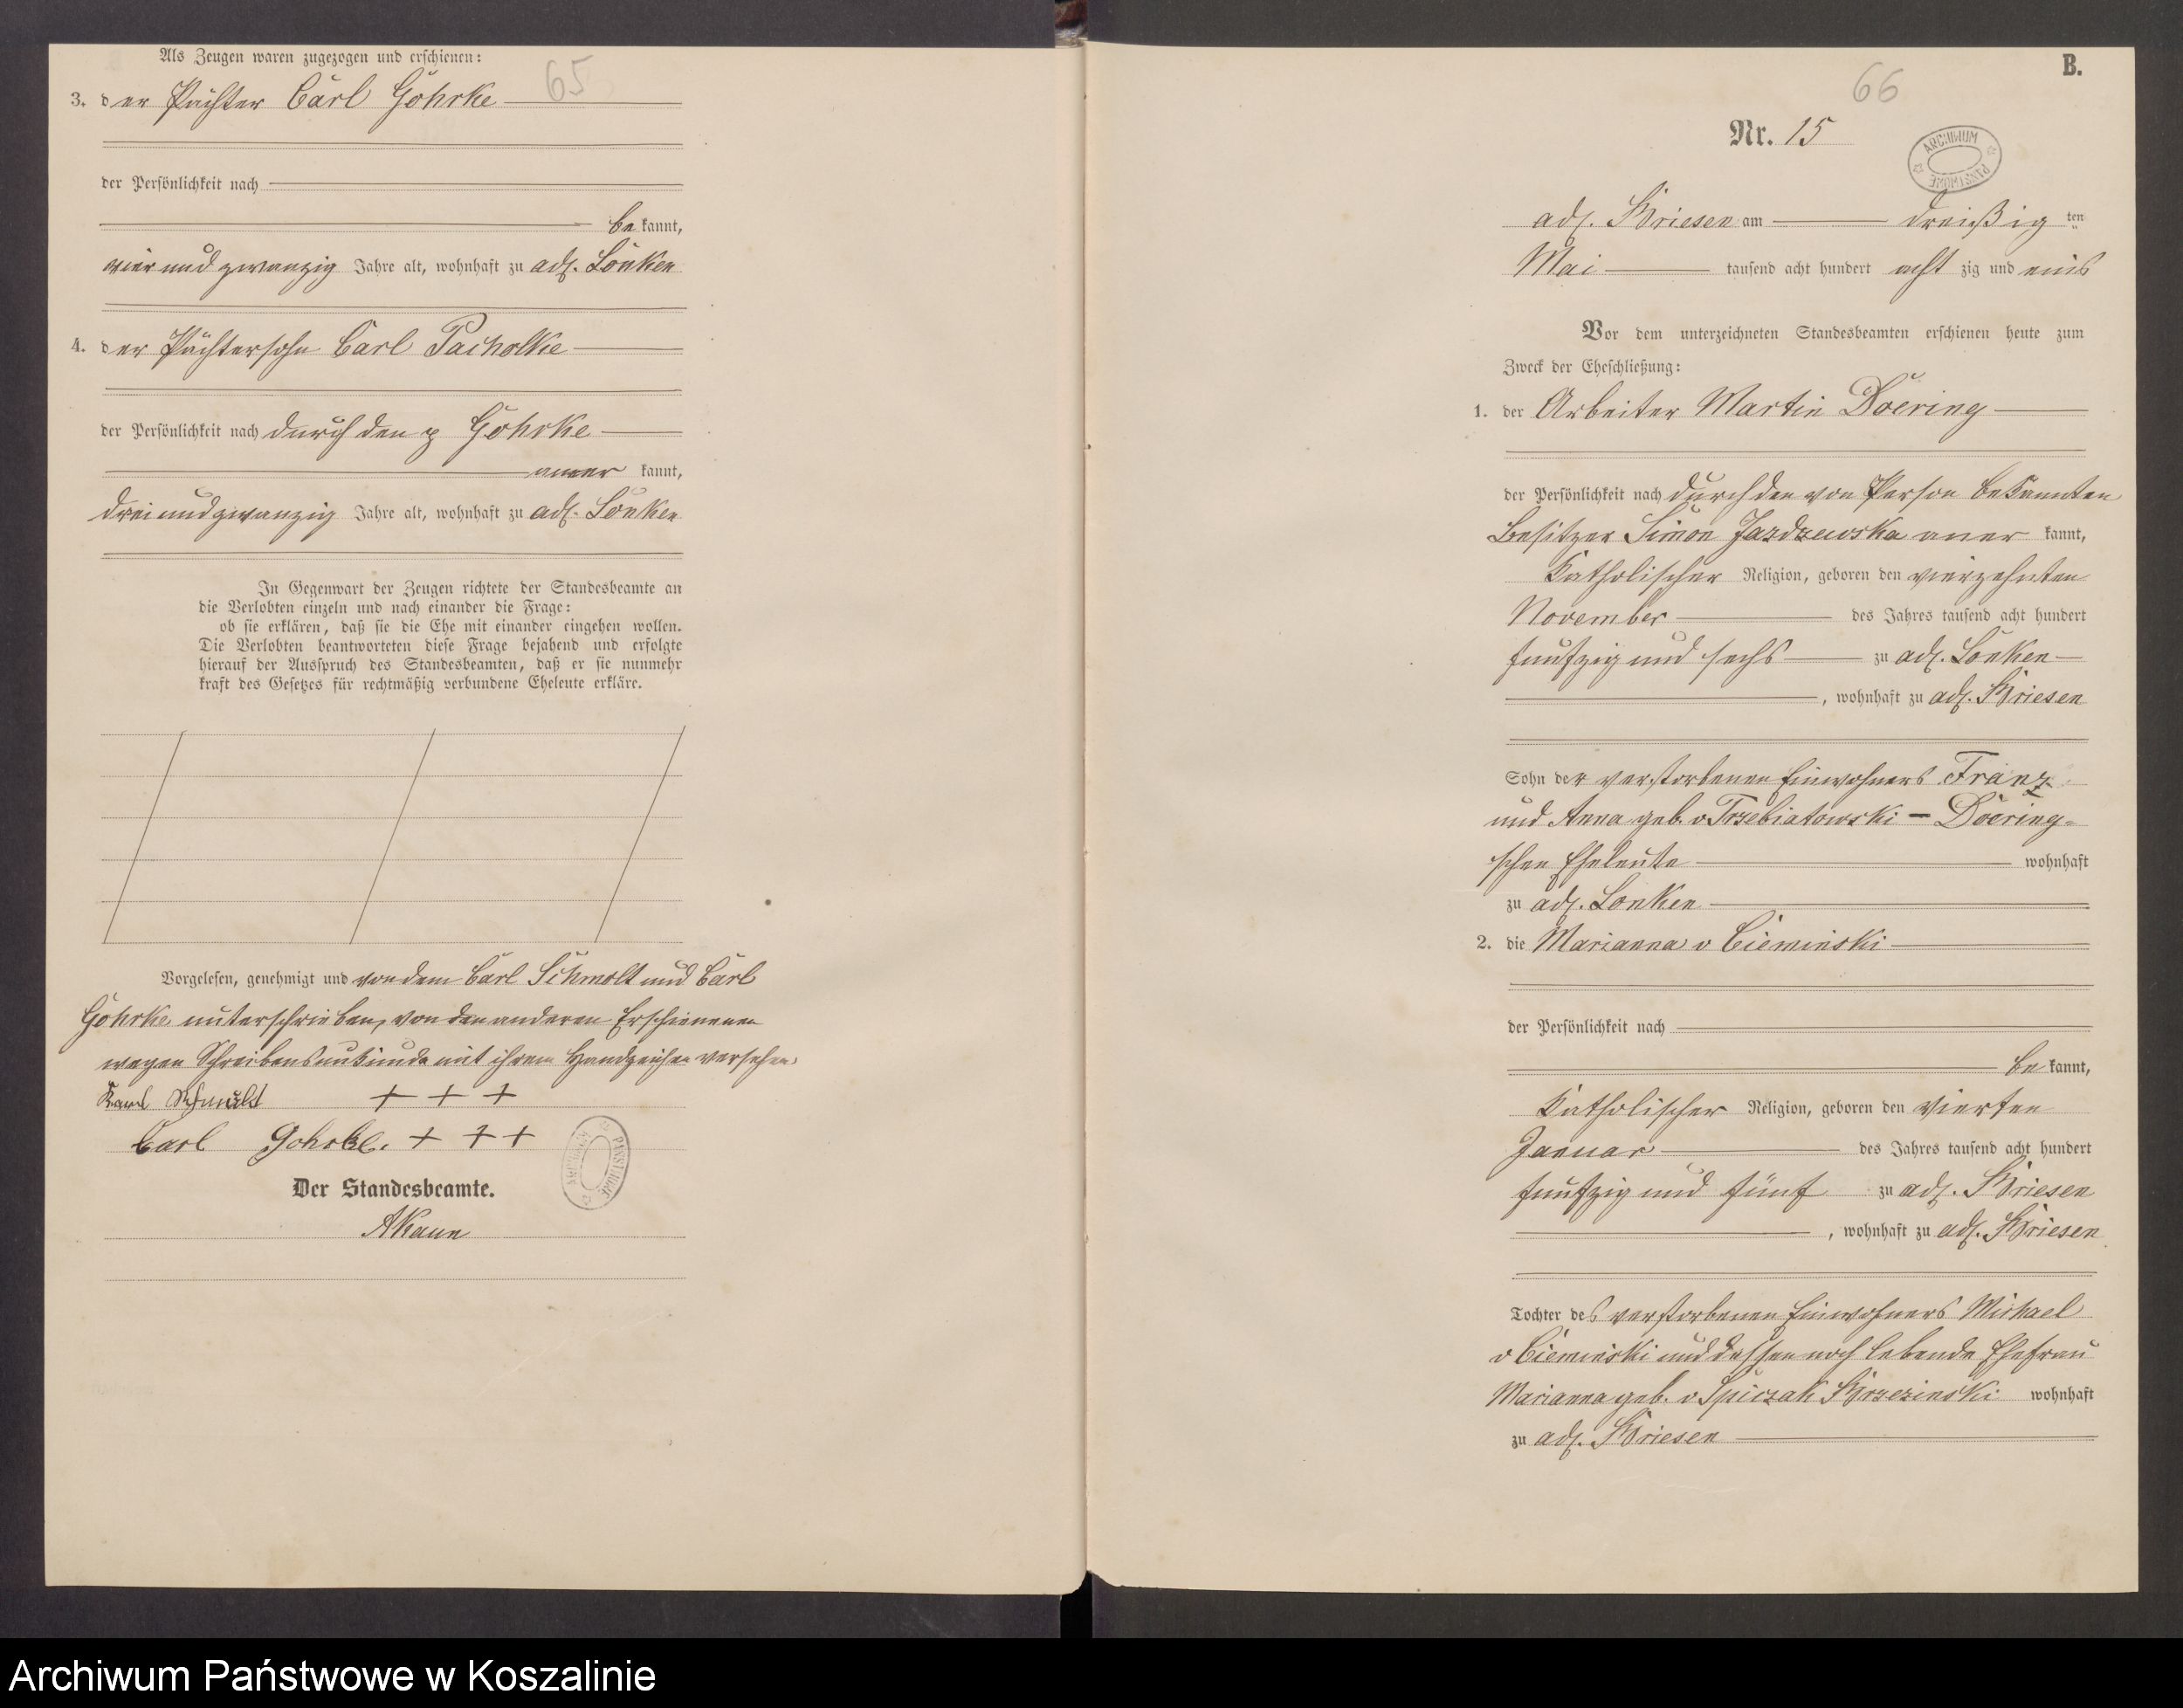 65
Als Zeugen waren zugezogen und erschienen:
3. der Pächter Carl Göhrke
der Persönlichkeit nach
bekannt,
vier und zwanzig Jahre alt, wohnhaft zu adl. Lonken
4. der Pächtersohn Carl Pacholke
der Persönlichkeit nach durch den p Göhrke
aner kannt,
drei und zwanzig Jahre alt, wohnhaft zu adl. Lonken
In Gegenwart der Zeugen richtete der Standesbeamte an
die Verlobten einzeln und nach einander die Frage:
ob sie erklären, daß sie die Ehe mit einander eingehen wollen.
Die Verlobten beantworteten diese Frage bejahend und erfolgte
hierauf der Ausspruch des Standesbeamten, daß er sie nunmehr
kraft des Gesetzes für rechtmäßig verbundene Eheleute erkläre.
Vorgelesen, genehmigt und von dem Carl Schmolt und Carl
Göhrke unterschrieben, von den anderen Erschienenen
wegen Schreibensunkunde mit ihrem Handzeichen versehen.
+ + +
Carl Gohrke. + + +
Der Standesbeamte.
AKaun
66
B.
Nr. 15
ARCHIWUM PAŃSTWOWE
adl. Briesen am dreißig ten
Mai tausend acht hundert acht zig und eins
Vor dem unterzeichneten Standesbeamten erschienen heute zum
Zweck der Eheschließung:
1. der Arbeiter Martin Doering
der Persönlichkeit nach durch den von Person bekannten
Besitzer Simon Jazdzewska aner kannt,
Katholischer Religion, geboren den vierzehnten
November des Jahres tausend acht hundert
funfzig und sechs zu adl. Lonken
, wohnhaft zu adl. Briesen
Sohn der verstorbenen Einwohners Franz
und Anna geb. v Trzebiatowski - Doering-
schen Eheleute wohnhaft
zu adl. Lonken
2. die Marianna v Cieminski
der Persönlichkeit nach
be kannt,
Katholischer Religion, geboren den vierten
Januar des Jahres tausend acht hundert
funfzig und fünf zu adl. Briesen
, wohnhaft zu adl. Briesen
Tochter des verstorbenen Einwohners Michael
v Cieminski und dessen noch lebende Ehefrau
Marianna geb. v Spiczak Brzezinski wohnhaft
zu adl. Briesen
Archiwum Państwowe w Koszalinie